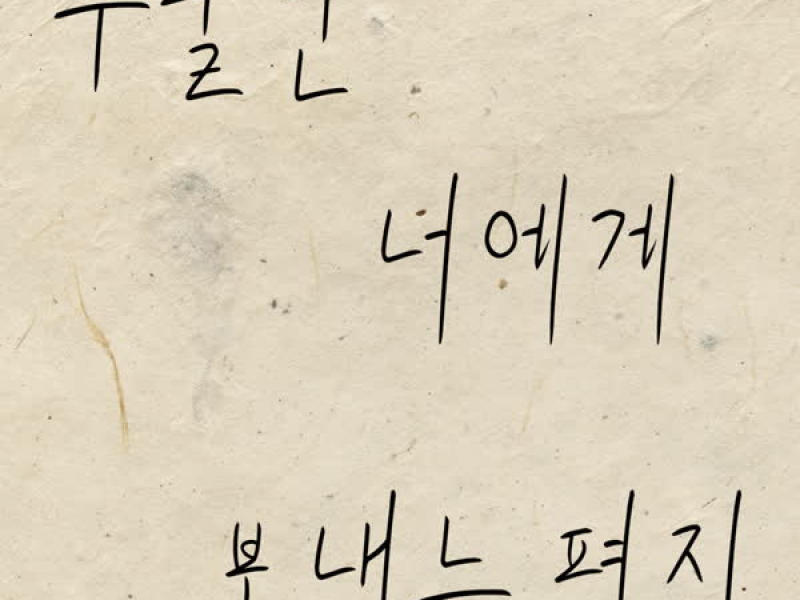 너에게
보내는 편지